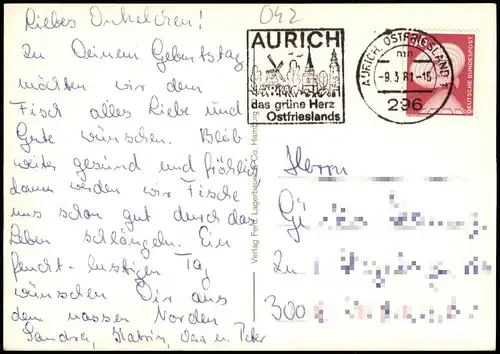 Liebes Onkelchen!
Zu Deinem Geburtstag
möchten wir dem
Fisch alles Liebe und
Gute wünschen. Bleib
weiter gesund und fröhlich
dann werden wir Fische
uns schon gut durch das
Leben schlängeln. Ein
feucht-lustigen Tag
wünschen Dir aus
dem nassen Norden
Sandra, Katrin, u. Peter
042
AURICH
das grüne Herz
Ostfrieslands
AURICH, OSTFRIESLAND 1
mn
-9.3.81-15
296
DEUTSCHE BUNDESPOST
Verlag Lagerbauer Co. Hamburg
Herrn
300